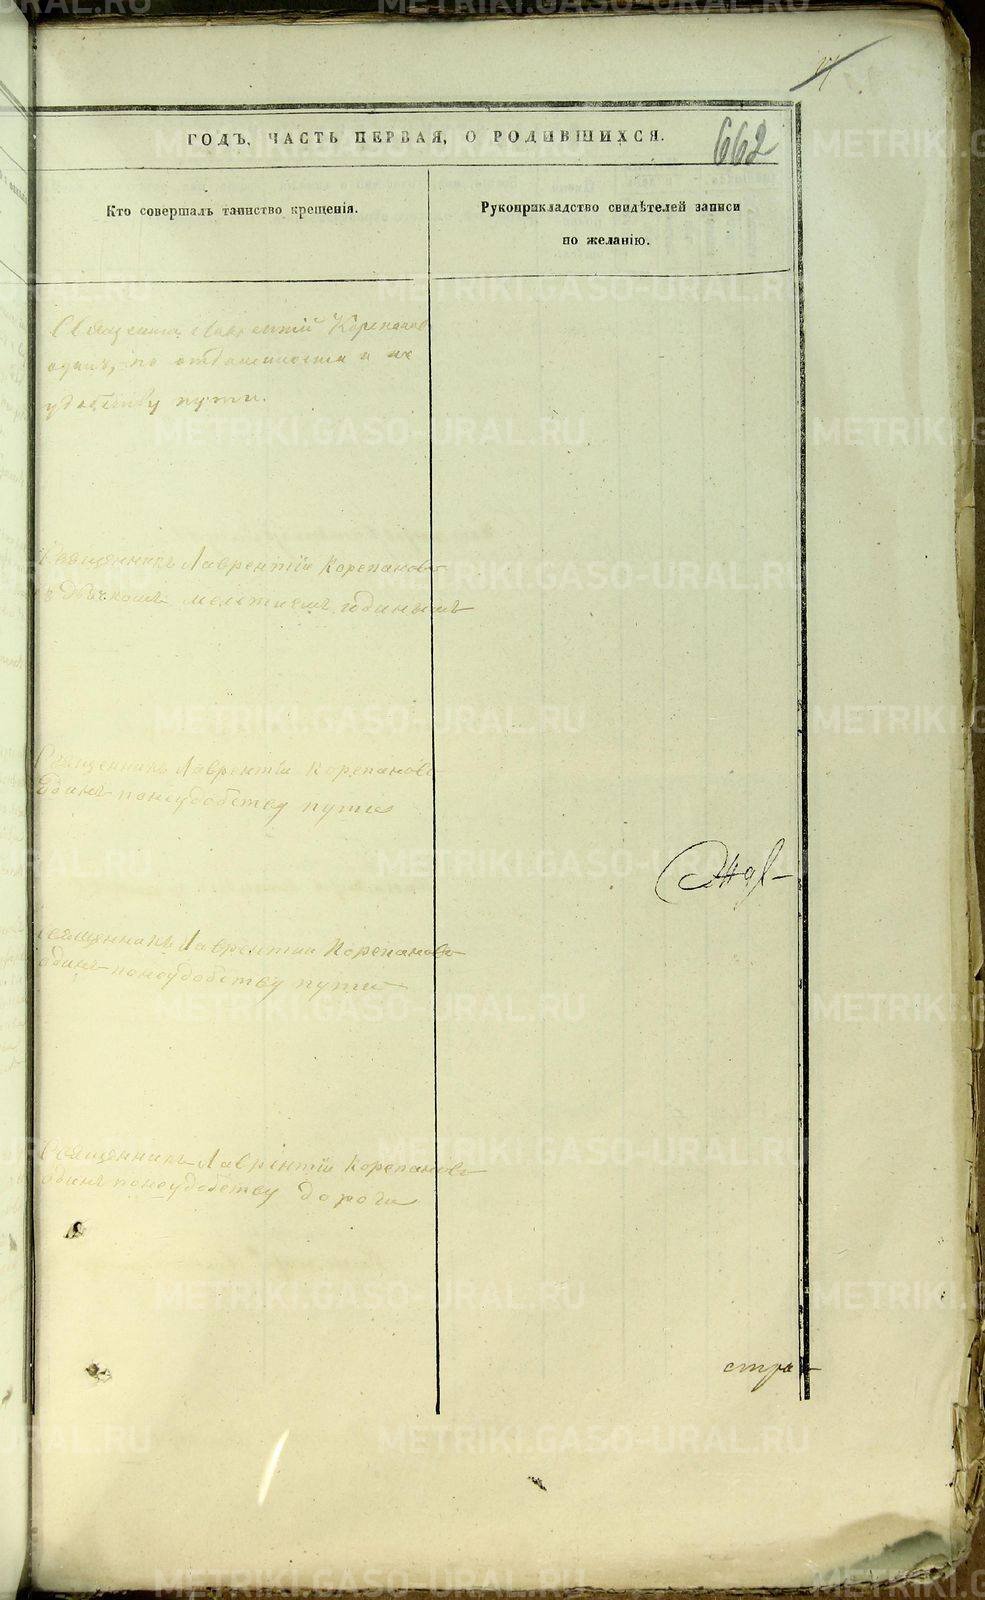 ГОДЪ, ЧАСТЬ ПЕРВАЯ, О РОДИВШИХСЯ.
662
Кто совершалъ таинство крещенія.
Рукоприкладство свидѣтелей записи
по желанію.
Священникъ Лаврентій Корепановъ
одинъ, по отдаленности и не
удобству пути.
Священникъ Лаврентій Корепановъ
Священникъ Лаврентій Корепановъ
одинъ понеудобству пути
Священникъ Лаврентій Корепановъ
одинъ понеудобству пути
Священникъ Лаврентій Корепановъ
одинъ понеудобству дороги
METRIKI.GASO-URAL.RU